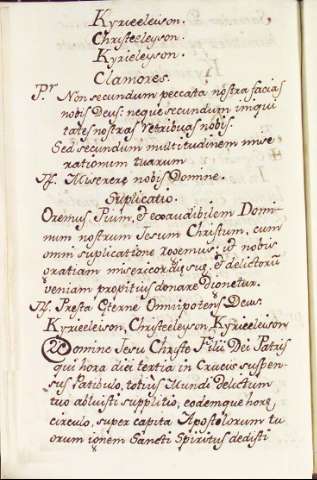 Kyrieeleison.
Christeeleyson.
Kyrieleyson.
Clamores.
Pr Non secundum peccata nostra facias
nobis Deus: neque secundum iniqui
tates nostras retribuas nobis.
Sed secundum multitudinem mise
rationum tuarum
Miserere nobis Domine.
Suplicatio.
Oremus. Pium, & exaudibilem Domi-
num nostrum Jesum Christum, cum
omni suplicatione rogemus: ut nobis
gratiam misericordię suę, & delictorū
veniam propitius donare dignetur.
Presta Ęterne Omnipotens Deus.
Kyrieeleison, Christeeleyson, Kyrieeleison
Domine Jesu Christe Filii Dei Patris
qui hora diei tertia in Crucis suspen-
sus Patibulo, totius Mundi delictum
tuo abluisti supplitio, eodemque horę
circulo, super capita Apostolorum tu
orum Sancti Spiritus dedisti